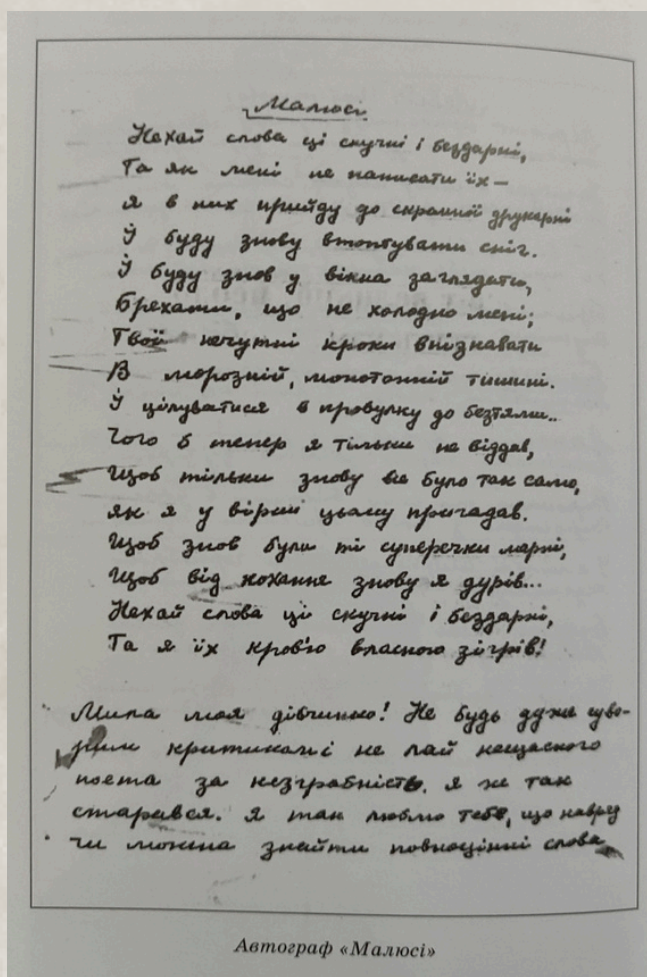 Малюсі
Нехай слова ці скучні і бездарні,
Та як мені не написати їх —
Я в них прийду до скромної друкарні
Й буду знову втоптувати сніг.
Й буду знов у вікна заглядати,
Брехати, що не холодно мені;
Твої нечутні кроки впізнавати
В морозній, монотонній тишині.
Й цілуватися в провулку до безтями..
Чого б тепер я тільки не віддав,
Щоб тільки знову все було так само,
Як я у вірші цьому пригадав.
Щоб знов були ті суперечки марні,
Щоб від кохання знову я дурів...
Нехай слова ці скучні і бездарні,
Та я їх кров'ю власною зігрів!
Мила моя дівчинко! Не будь дуже суво-
рим критиком і не лай нещасного
поета за незграбність. Я же так
старався. Я так люблю тебе, що навряд
чи можна знайти повноцінні слова
Автограф «Малюсі»